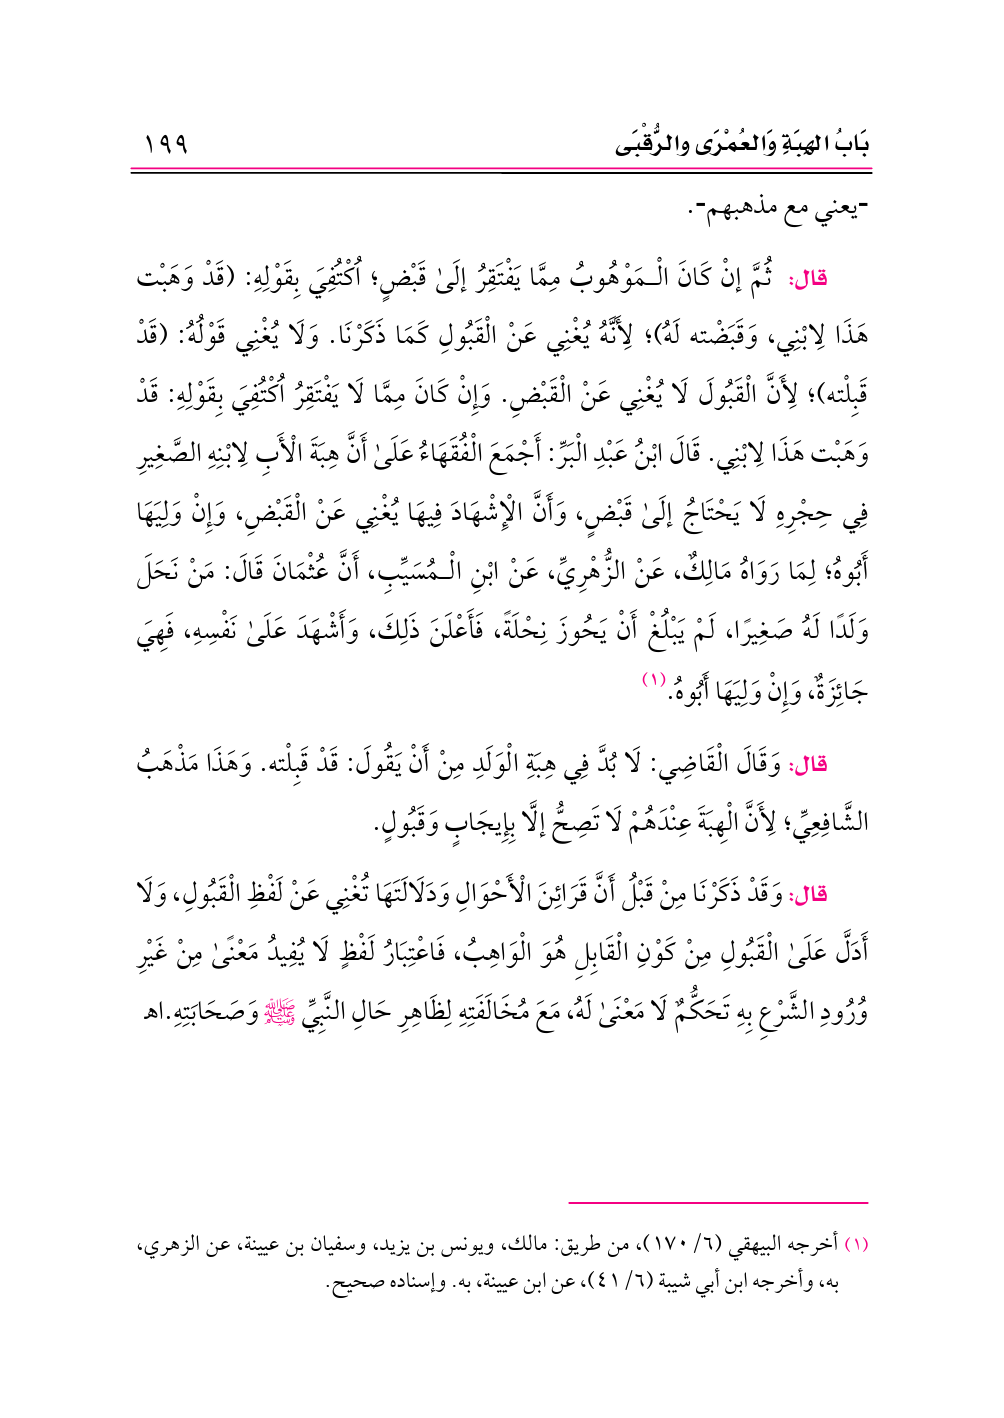 بَابُ الهِبَةِ وَالعُمْرَى والرُّقْبَى ١٩٩
-يعني مع مذهبهم-.
قال: ثُمَّ إنْ كَانَ الْـمَوْهُوبُ مِمَّا يَفْتَقِرُ إلَىٰ قَبْضٍ؛ اُكْتُفِيَ بِقَوْلِهِ: (قَدْ وَهَبْت
هَذَا لِابْنِي، وَقَبَضْته لَهُ)؛ لِأَنَّهُ يُغْنِي عَنْ الْقَبُولِ كَمَا ذَكَرْنَا. وَلَا يُغْنِي قَوْلُهُ: (قَدْ
قَبِلْته)؛ لِأَنَّ الْقَبُولَ لَا يُغْنِي عَنْ الْقَبْضِ. وَإِنْ كَانَ مِمَّا لَا يَفْتَقِرُ اُكْتُفِيَ بِقَوْلِهِ: قَدْ
وَهَبْت هَذَا لِابْنِي. قَالَ ابْنُ عَبْدِ الْبَرِّ: أَجْمَعَ الْفُقَهَاءُ عَلَىٰ أَنَّ هِبَةَ الْأَبِ لِابْنِهِ الصَّغِيرِ
فِي حِجْرِهِ لَا يَحْتَاجُ إلَىٰ قَبْضٍ، وَأَنَّ الْإِشْهَادَ فِيهَا يُغْنِي عَنْ الْقَبْضِ، وَإِنْ وَلِيَهَا
أَبُوهُ؛ لِمَا رَوَاهُ مَالِكٌ، عَنْ الزُّهْرِيِّ، عَنْ ابْنِ الْـمُسَيِّبِ، أَنَّ عُثْمَانَ قَالَ: مَنْ نَحَلَ
وَلَدًا لَهُ صَغِيرًا، لَمْ يَبْلُغْ أَنْ يَحُوزَ نِحْلَةً، فَأَعْلَنَ ذَلِكَ، وَأَشْهَدَ عَلَىٰ نَفْسِهِ، فَهِيَ
جَائِزَةٌ، وَإِنْ وَلِيَهَا أَبُوهُ.(١)
قال: وَقَالَ الْقَاضِي: لَا بُدَّ فِي هِبَةِ الْوَلَدِ مِنْ أَنْ يَقُولَ: قَدْ قَبِلْته. وَهَذَا مَذْهَبُ
الشَّافِعِيِّ؛ لِأَنَّ الْهِبَةَ عِنْدَهُمْ لَا تَصِحُّ إلَّا بِإِيجَابٍ وَقَبُولٍ.
قال: وَقَدْ ذَكَرْنَا مِنْ قَبْلُ أَنَّ قَرَائِنَ الْأَحْوَالِ وَدَلَالَتَهَا تُغْنِي عَنْ لَفْظِ الْقَبُولِ، وَلَا
أَدَلَّ عَلَىٰ الْقَبُولِ مِنْ كَوْنِ الْقَابِلِ هُوَ الْوَاهِبُ، فَاعْتِبَارُ لَفْظٍ لَا يُفِيدُ مَعْنًىٰ مِنْ غَيْرِ
وُرُودِ الشَّرْعِ بِهِ تَحَكُّمٌ لَا مَعْنَىٰ لَهُ، مَعَ مُخَالَفَتِهِ لِظَاهِرِ حَالِ النَّبِيِّ ﷺ وَصَحَابَتِهِ.اﻫ
(١) أخرجه البيهقي (٦/ ١٧٠)، من طريق: مالك، ويونس بن يزيد، وسفيان بن عيينة، عن الزهري،
به، وأخرجه ابن أبي شيبة (٦/ ٤١)، عن ابن عيينة، به. وإسناده صحيح.